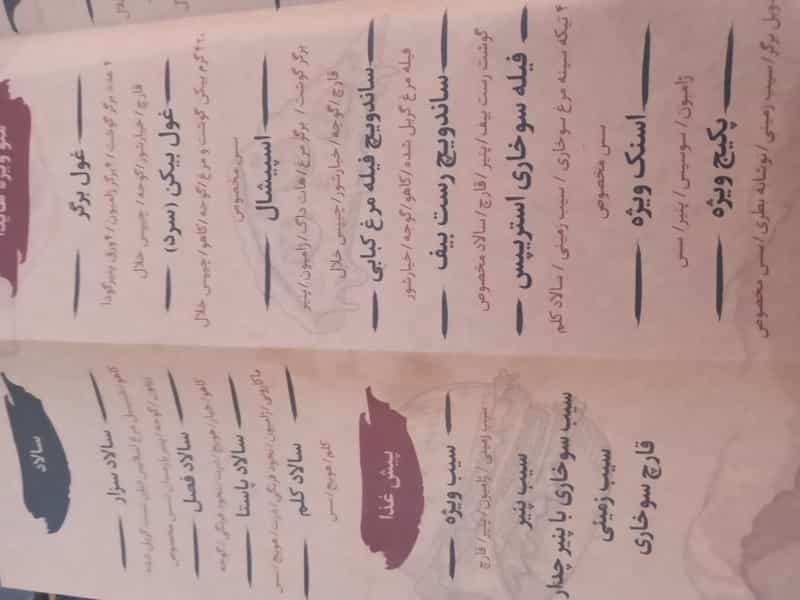 منو ویژه
غول برگر
۴ عدد برگر گوشت / ۴ برگر ژامبون / ۴ ورق پنیر گودا
قارچ / خیارشور / گوجه / چیپس خلال
غول بیکن (سرد)
۴۲۰ گرم بیکن گوشت و مرغ / گوجه / کاهو / چیپس خلال
سس مخصوص
اسپیشال
برگر گوشت / برگر مرغ / هات داگ / ژامبون / پنیر
قارچ / گوجه / خیارشور / چیپس خلال
ساندویچ فیله مرغ کبابی
فیله مرغ گریل شده / کاهو / گوجه / خیارشور
ساندویچ رست بیف
گوشت رست بیف / پنیر / قارچ / سالاد مخصوص
فیله سوخاری استریپس
۴ تیکه سینه مرغ سوخاری / سیب زمینی / سالاد کلم
سس مخصوص
اسنک ویژه
ژامبون / سوسیس / پنیر / سس
پکیج ویژه
دوبل برگر / سیب زمینی / نوشابه بطری / سس مخصوص
سالاد
سالاد سزار
سالاد فصل
کاهو / خیار / هویج / ذرت / نخود فرنگی / گوجه
سالاد پاستا
ماکارونی / ژامبون / نخود فرنگی / ذرت / هویج / سس
سالاد کلم
کلم / هویج / سس
پیش غذا
سیب ویژه
سیب زمینی / ژامبون / پنیر / قارچ
سیب پنیر
سیب سوخاری با پنیر چدار
سیب زمینی
قارچ سوخاری